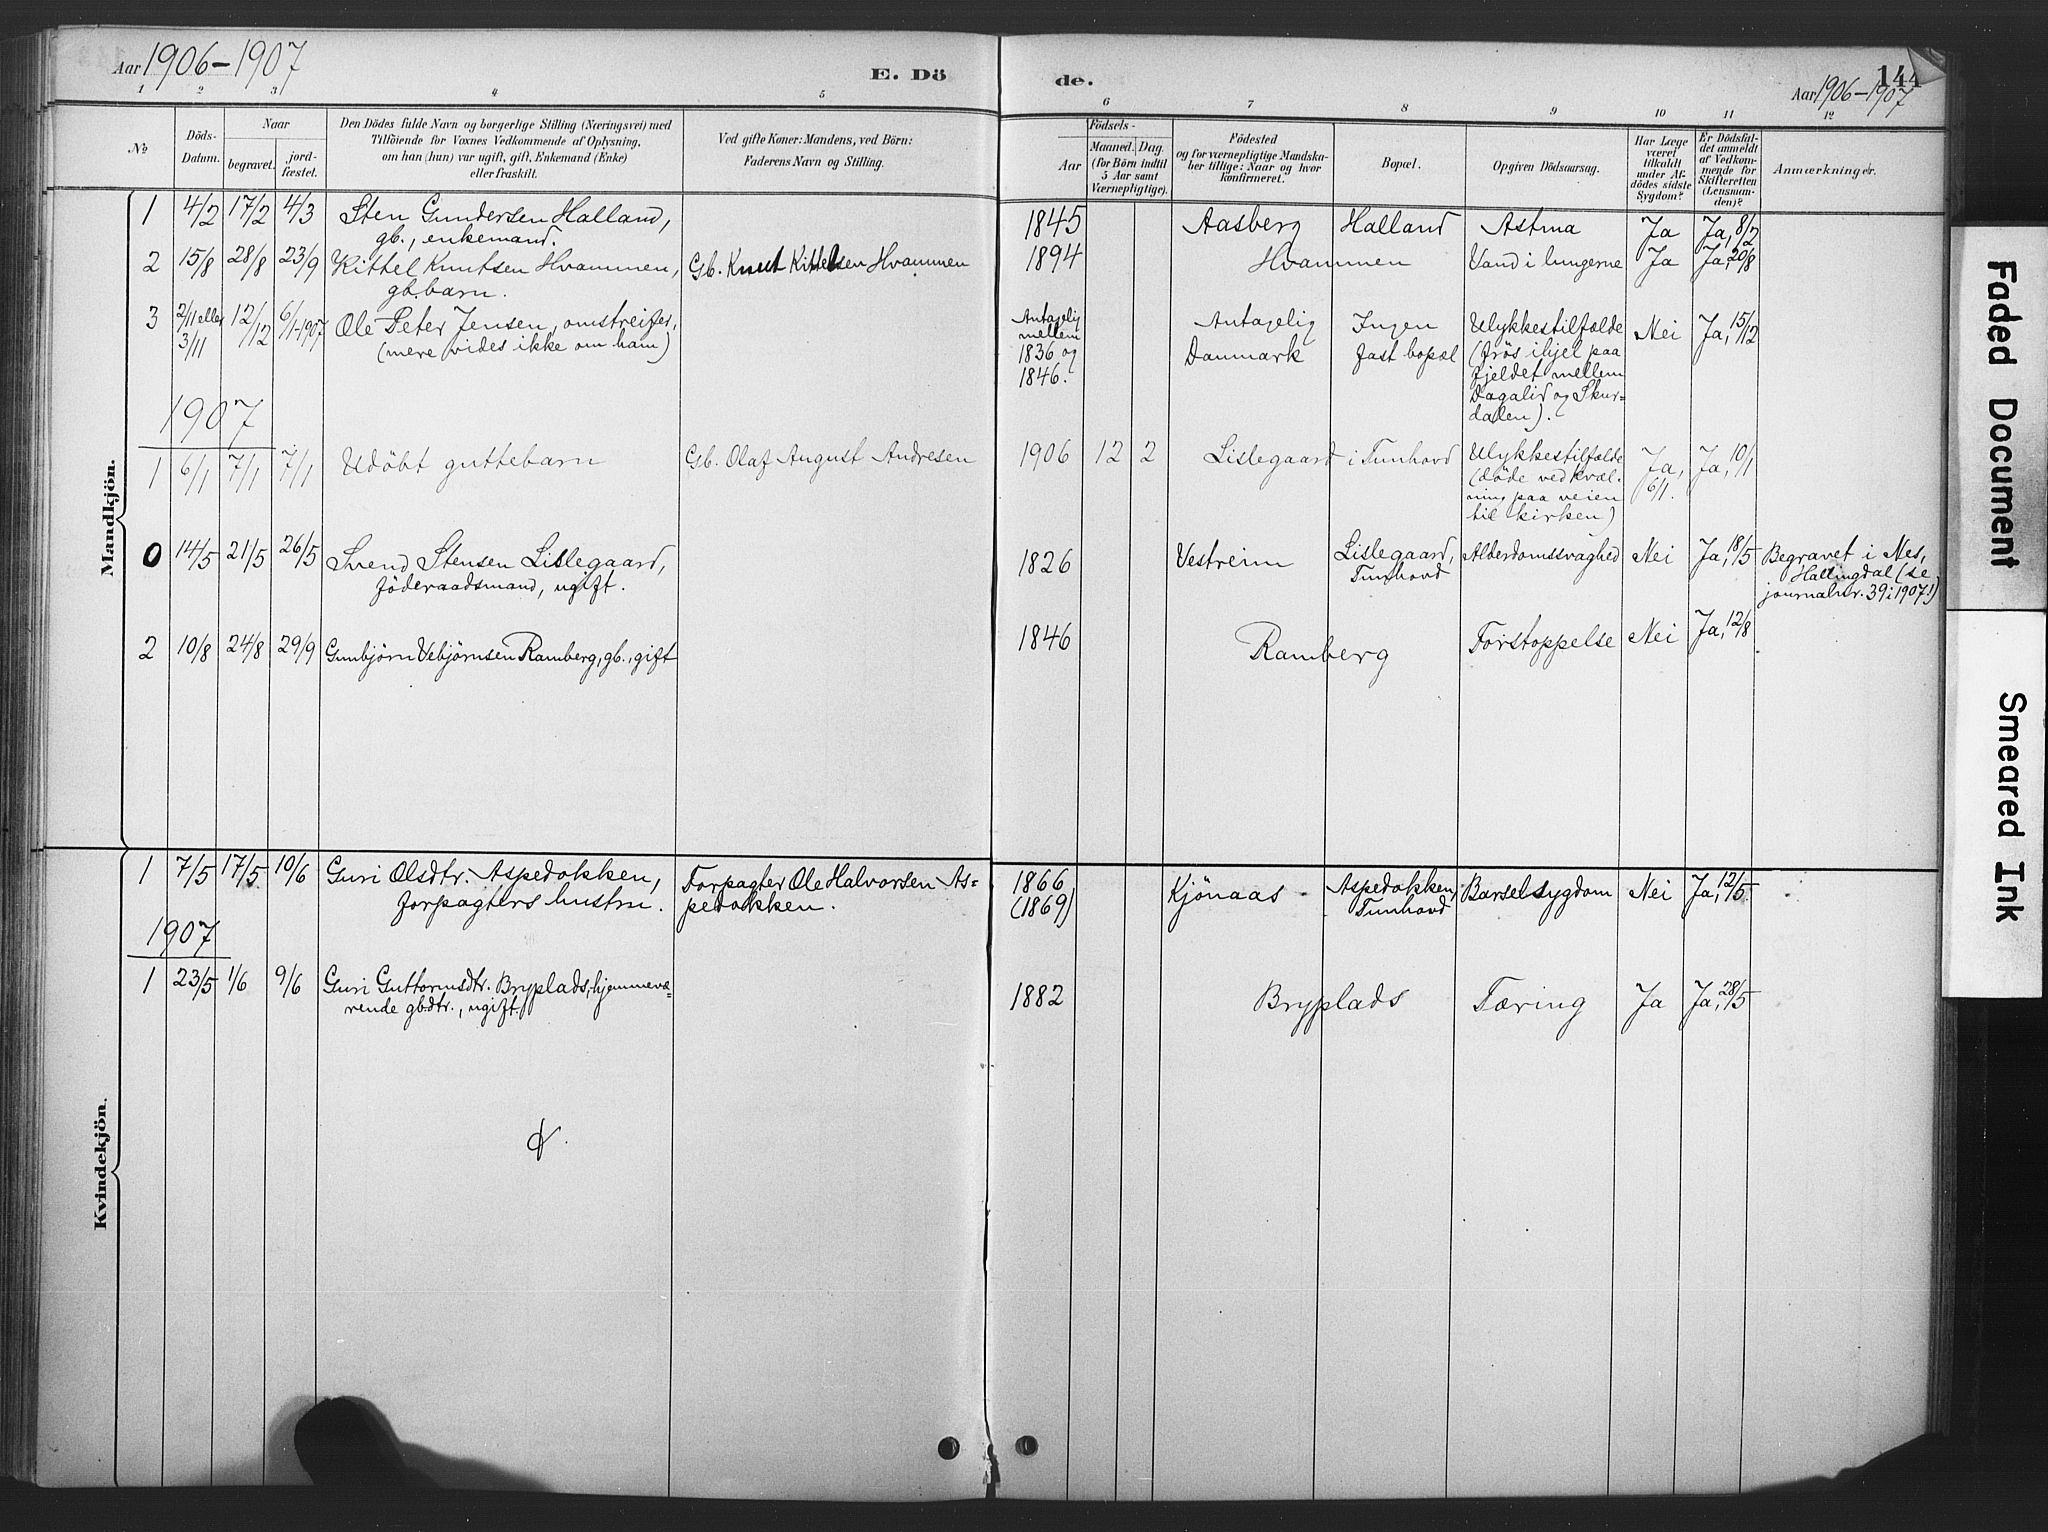 Aar 1906-1907
E. Dö
de.
144
Aar 1906-1907
1 2 3 4 5 6 7 8 9 10 11 12
No
Döds-
Datum.
Naar
begravet.
jord-
fæstet.
Den Dödes fulde Navn og borgerlige Stilling (Næringsvei) med
Tilföiende for Voxnes Vedkommende af Oplysning,
om han (hun) var ugift, gift, Enkemand (Enke)
eller fraskilt.
Ved gifte Koner: Mandens, ved Börn:
Faderens Navn og Stilling.
Födsels-
Aar
Maaned.
Dag.
(for Börn indtil
5 Aar samt
Værnepligtige).
Födested
og for værnepligtige Mandska-
ber tillige: Naar og hvor
konfirmeret.
Bopæl.
Opgiven Dödsaarsag.
Har Læge
været
tilkaldt
under Af-
dödes sidste
Sygdom?
Er Dödsfal-
det anmeldt
af Vedkom-
mende for
Skifteretten
(Lensman-
den)?
Anmærkninger.
Mandkjön.
1 4/2 17/2 4/3 Sten Gundersen Halland, 1845 Aasberg Halland Astma Ja Ja, 8/2
gb., enkemand.
2 15/8 28/8 23/9 Kittel Knutsen Hvammen, Gb. Knut Kittelsen Hvammen 1894 Hvammen Vand i lungerne Ja Ja, 20/8
gb. barn.
3 2/11 eller 12/12 6/1-1907 Ole Peter Jensen, omstreifer, Antagelig Antagelig Ingen Ulykkestilfælde Nei Ja, 15/12
3/11 (mere vides ikke om ham) mellem Danmark fast bopæl (frös ihjel paa
1836 og fjeldet mellem
1846. Dagalid og Skur=
dalen).
1907
1 6/1 7/1 7/1 Udöbt guttebarn Gb. Olaf August Andresen 1906 12 2 Lislegaard i Tunhovd Ulykkestilfælde Ja, Ja, 10/1
(döde ved kvæl- 6/1.
ning paa veien
til kirken)
0 14/5 21/5 26/5 Svend Stensen Lislegaard, 1826 Vestreim Lislegaard, Alderdomssvaghed Nei Ja, 18/5 Begravet i Nes,
föderaadsmand, ugift. Tunhovd Hallingdal (se
journalnr. 39 i 1907!)
2 10/8 24/8 29/9 Gunbjörn Vebjörnsen Ramberg, gb., gift 1846 Ramberg Forstoppelse Nei Ja, 12/8
Kvindekjön.
1 7/5 17/5 10/6 Guri Olsdtr. Aspedokken, Forpagter Ole Halvorsen As= 1866 Kjönaas Aspedokken, Barselsygdom Nei Ja, 12/5
forpagters hustru. pedokken. (1869) Tunhovd
1907
1 23/5 1/6 9/6 Guri Guttormsdtr. Bryplads, hjemmevæ= 1882 Bryplads Tæring Ja Ja, 28/5
rende gbdtr., ugift.
Faded Document
Smeared Ink